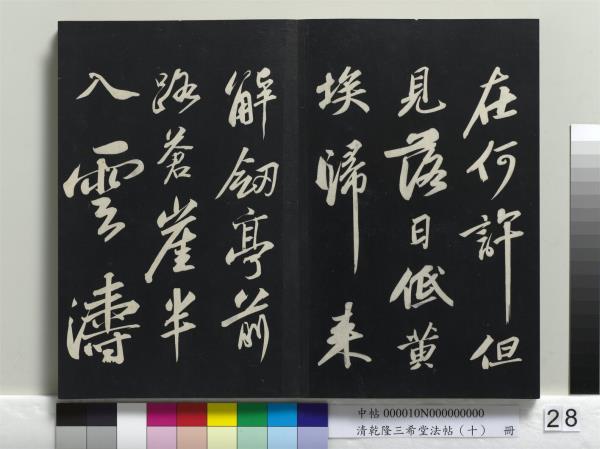 在何許但
見落日低黄
埃歸来
解劒亭前
路蒼崖半
入雲濤
中帖 000010N000000000
清乾隆三希堂法帖(十) 冊
28